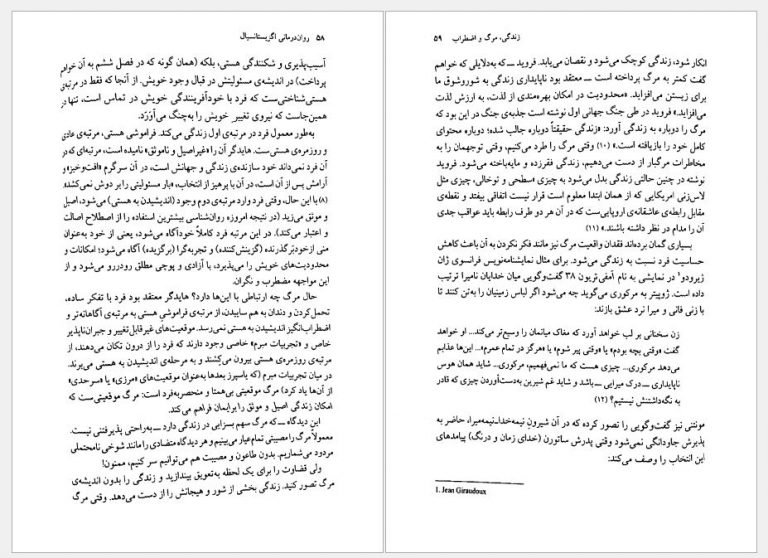 ۵۸ روان‌درمانی اگزیستانسیال
آسیب‌پذیری و شکنندگی هستی، بلکه (همان گونه که در فصل ششم به آن خواهم
پرداخت) در اندیشه‌ی مسئولیتش در قبال وجود خویش. از آنجا که فقط در مرتبه‌ی
هستی‌شناختی‌ست که فرد با خودآفرینندگی خویش در تماس است، تنها در
همین‌جاست که نیروی تغییر خویش را به‌چنگ می‌آوَرَد.
به‌طور معمول فرد در مرتبه‌ی اول زندگی می‌کند. فراموشی هستی، مرتبه‌ی عادی
و روزمره‌ی هستی‌ست. هایدگر آن را «غیراصیل و ناموثق» نامیده است، مرتبه‌ای که در
آن فرد نمی‌داند خود سازنده‌ی زندگی و جهانش است، در آن سرگرم «افت‌وخیز» و
آرامش پس از آن است، در آن با پرهیز از انتخاب، «بار مسئولیتی را بر دوش نمی‌کشد»
(۸) با این حال، وقتی فرد وارد مرتبه‌ی دوم وجود (اندیشیدن به هستی) می‌شود، اصیل
و موثق می‌زید (در نتیجه امروزه روان‌شناسی بیشترین استفاده را از اصطلاح اصالت
و اعتبار می‌کند). در این مرتبه فرد کاملاً خودآگاه می‌شود، یعنی از خود به‌عنوان
منی ازخودبَرگذرنده (گزینش‌کننده) و تجربه‌گرا (برگزیده) آگاه می‌شود؛ امکانات و
محدودیت‌های خویش را می‌پذیرد، با آزادی و پوچی مطلق رودررو می‌شود و از
این مواجهه مضطرب و نگران.
حال مرگ چه ارتباطی با این‌ها دارد؟ هایدگر معتقد بود فرد با تفکر ساده،
تحمل‌کردن و دندان به هم ساییدن، از مرتبه‌ی فراموشیِ هستی به مرتبه‌ی آگاهانه‌تر و
اضطراب‌انگیز اندیشیدن به هستی نمی‌رسد. موقعیت‌های غیرقابل‌تغییر و جبران‌ناپذیر
خاص و «تجربیات مبرم» خاصی وجود دارند که فرد را از درون تکان می‌دهند، از
مرتبه‌ی روزمره‌ی هستی بیرون می‌کِشند و به مرحله‌ی اندیشیدن به هستی می‌برند.
در میان تجربیات مبرم (که یاسپرز بعدها به‌عنوان موقعیت‌های «مرزی» یا «سرحدی»
از آن‌ها یاد کرد) مرگ موقعیتی بی‌همتا و منحصربه‌فرد است: مرگ موقعیتی‌ست که
امکان زندگی اصیل و موثق را برایمان فراهم می‌کند.
این دیدگاه ــ که مرگ سهم بسزایی در زندگی دارد ــ به‌راحتی پذیرفتنی نیست.
معمولاً مرگ را مصیبتی تمام‌عیار می‌بینیم و هر دیدگاه متضادی را مانند شوخی نامحتملی
مردود می‌شماریم. بدون طاعون و مصیبت هم می‌توانیم سر کنیم، ممنون!
ولی قضاوت را برای یک لحظه به‌تعویق بیندازید و زندگی را بدون اندیشه‌ی
مرگ تصور کنید. زندگی بخشی از شور و هیجانش را از دست می‌دهد. وقتی مرگ
زندگی، مرگ و اضطراب ۵۹
انکار شود، زندگی کوچک می‌شود و نقصان می‌یابد. فروید ــ که به‌دلایلی که خواهم
گفت کمتر به مرگ پرداخته است ــ معتقد بود ناپایداری زندگی به شوروشوق ما
برای زیستن می‌افزاید. «محدودیت در امکان بهره‌مندی از لذت، به ارزش لذت
می‌افزاید.» فروید در طی جنگ جهانی اول نوشته است جذبه‌ی جنگ در این بود که
مرگ را دوباره به زندگی آورد: «زندگی حقیقتاً دوباره جالب شده؛ دوباره محتوای
کامل خود را بازیافته است.» (۱۰) وقتی مرگ را طرد می‌کنیم، وقتی توجهمان را به
مخاطرات مرگبار از دست می‌دهیم، زندگی فقرزده و مایه‌باخته می‌شود. فروید
نوشته در چنین حالتی زندگی بدل می‌شود به چیزی «سطحی و توخالی، چیزی مثل
لاس‌زنی امریکایی که از همان ابتدا معلوم است قرار نیست اتفاقی بیفتد و نقطه‌ی
مقابل رابطه‌ی عاشقانه‌ی اروپایی‌ست که در آن هر دو طرف رابطه باید عواقب جدی
آن را مدام در نظر داشته باشند.» (۱۱)
بسیاری گمان برده‌اند فقدان واقعیت مرگ نیز مانند فکر نکردن به آن باعث کاهش
حساسیت فرد نسبت به زندگی می‌شود. برای مثال نمایشنامه‌نویس فرانسوی ژان
ژیرودو¹ در نمایشی به نام آمفی‌تریون ۳۸ گفت‌وگویی میان خدایان نامیرا ترتیب
داده است. ژوپیتر به مرکوری می‌گوید چه می‌شود اگر لباس زمینیان را به‌تن کنند تا
با زنی فانی و میرا نرد عشق بازند:
زن سخنانی بر لب خواهد آورد که مغاک میانمان را وسیع‌تر می‌کند... او خواهد
گفت «وقتی بچه بودم» یا «وقتی پیر شوم» یا «هرگز در تمام عمرم»... این‌ها عذابم
می‌دهد مرکوری... چیزی هست که ما نمی‌فهمیم، مرکوری... شاید همان هوس
ناپایداری ــ درک میرایی ــ باشد و شاید غم شیرین به‌دست‌آوردن چیزی که قادر
به نگه‌داشتنش نیستیم؟ (۱۲)
مونتنی نیز گفت‌وگویی را تصور کرده که در آن شیرونِ نیمه‌خدا-نیمه‌میرا، حاضر به
پذیرش جاودانگی نمی‌شود وقتی پدرش ساتورن (خدای زمان و درنگ) پیامدهای
این انتخاب را وصف می‌کند:
1. Jean Giraudoux